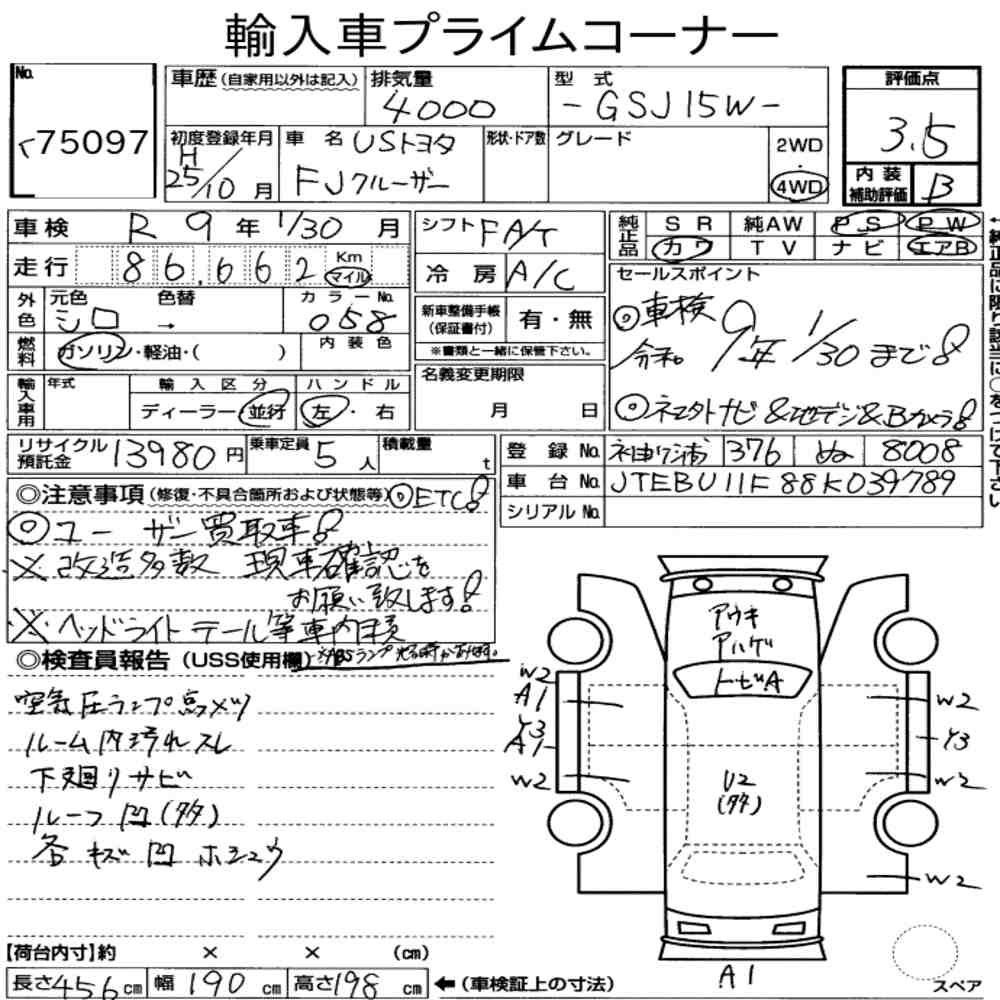 輸入車プライムコーナー
No.
75097
車歴 (自家用以外は記入)
排気量
4000
型式
-GSJ15W-
評価点
3.5
初度登録年月
H
25/10 月
車名 USトヨタ
FJクルーザー
形状・ドア数
グレード
2WD
・
4WD
内装
補助評価
B
車検 R 9 年 1/30 月
走行 86,662 Km マイル
シフト FA/T
冷房 A/C
純正品
SR 純AW PS PW
カワ TV ナビ エアB
外色
元色 シロ
色替 →
カラーNo. 058
燃料 ガソリン・軽油・( )
内装色
新車整備手帳
(保証書付)
有・無
※書類と一緒に保管下さい。
セールスポイント
◎車検
令和。9年 1/30 まで
輸入車用
年式
輸入区分
ディーラー・並行
ハンドル
左・右
名義変更期限
月 日
リサイクル
預託金
13980円
乗車定員 5人
積載量 t
登録No. 376 ぬ 8008
車台No. JTEBU11F88K039789
シリアルNo.
◎注意事項 (修復・不具合箇所および状態等) ◎ETC
◎ユーザー買取車
※改造多数 現車確認を
お願い致します
※ヘッドライト テール等車内積
◎検査員報告 (USS使用欄)
空気圧ランプ点メツ
ルーム内汚れスレ
下廻りサビ
ルーフ凹(多)
各キズ凹ホシュウ
アウキ
アハゲ
トビA
W2
A1
Y3
A1
W2
U2
(多)
W2
Y3
W2
W2
A1
スペア
【荷台内寸】約 × × (cm)
長さ456cm 幅190cm 高さ198cm ←(車検証上の寸法)